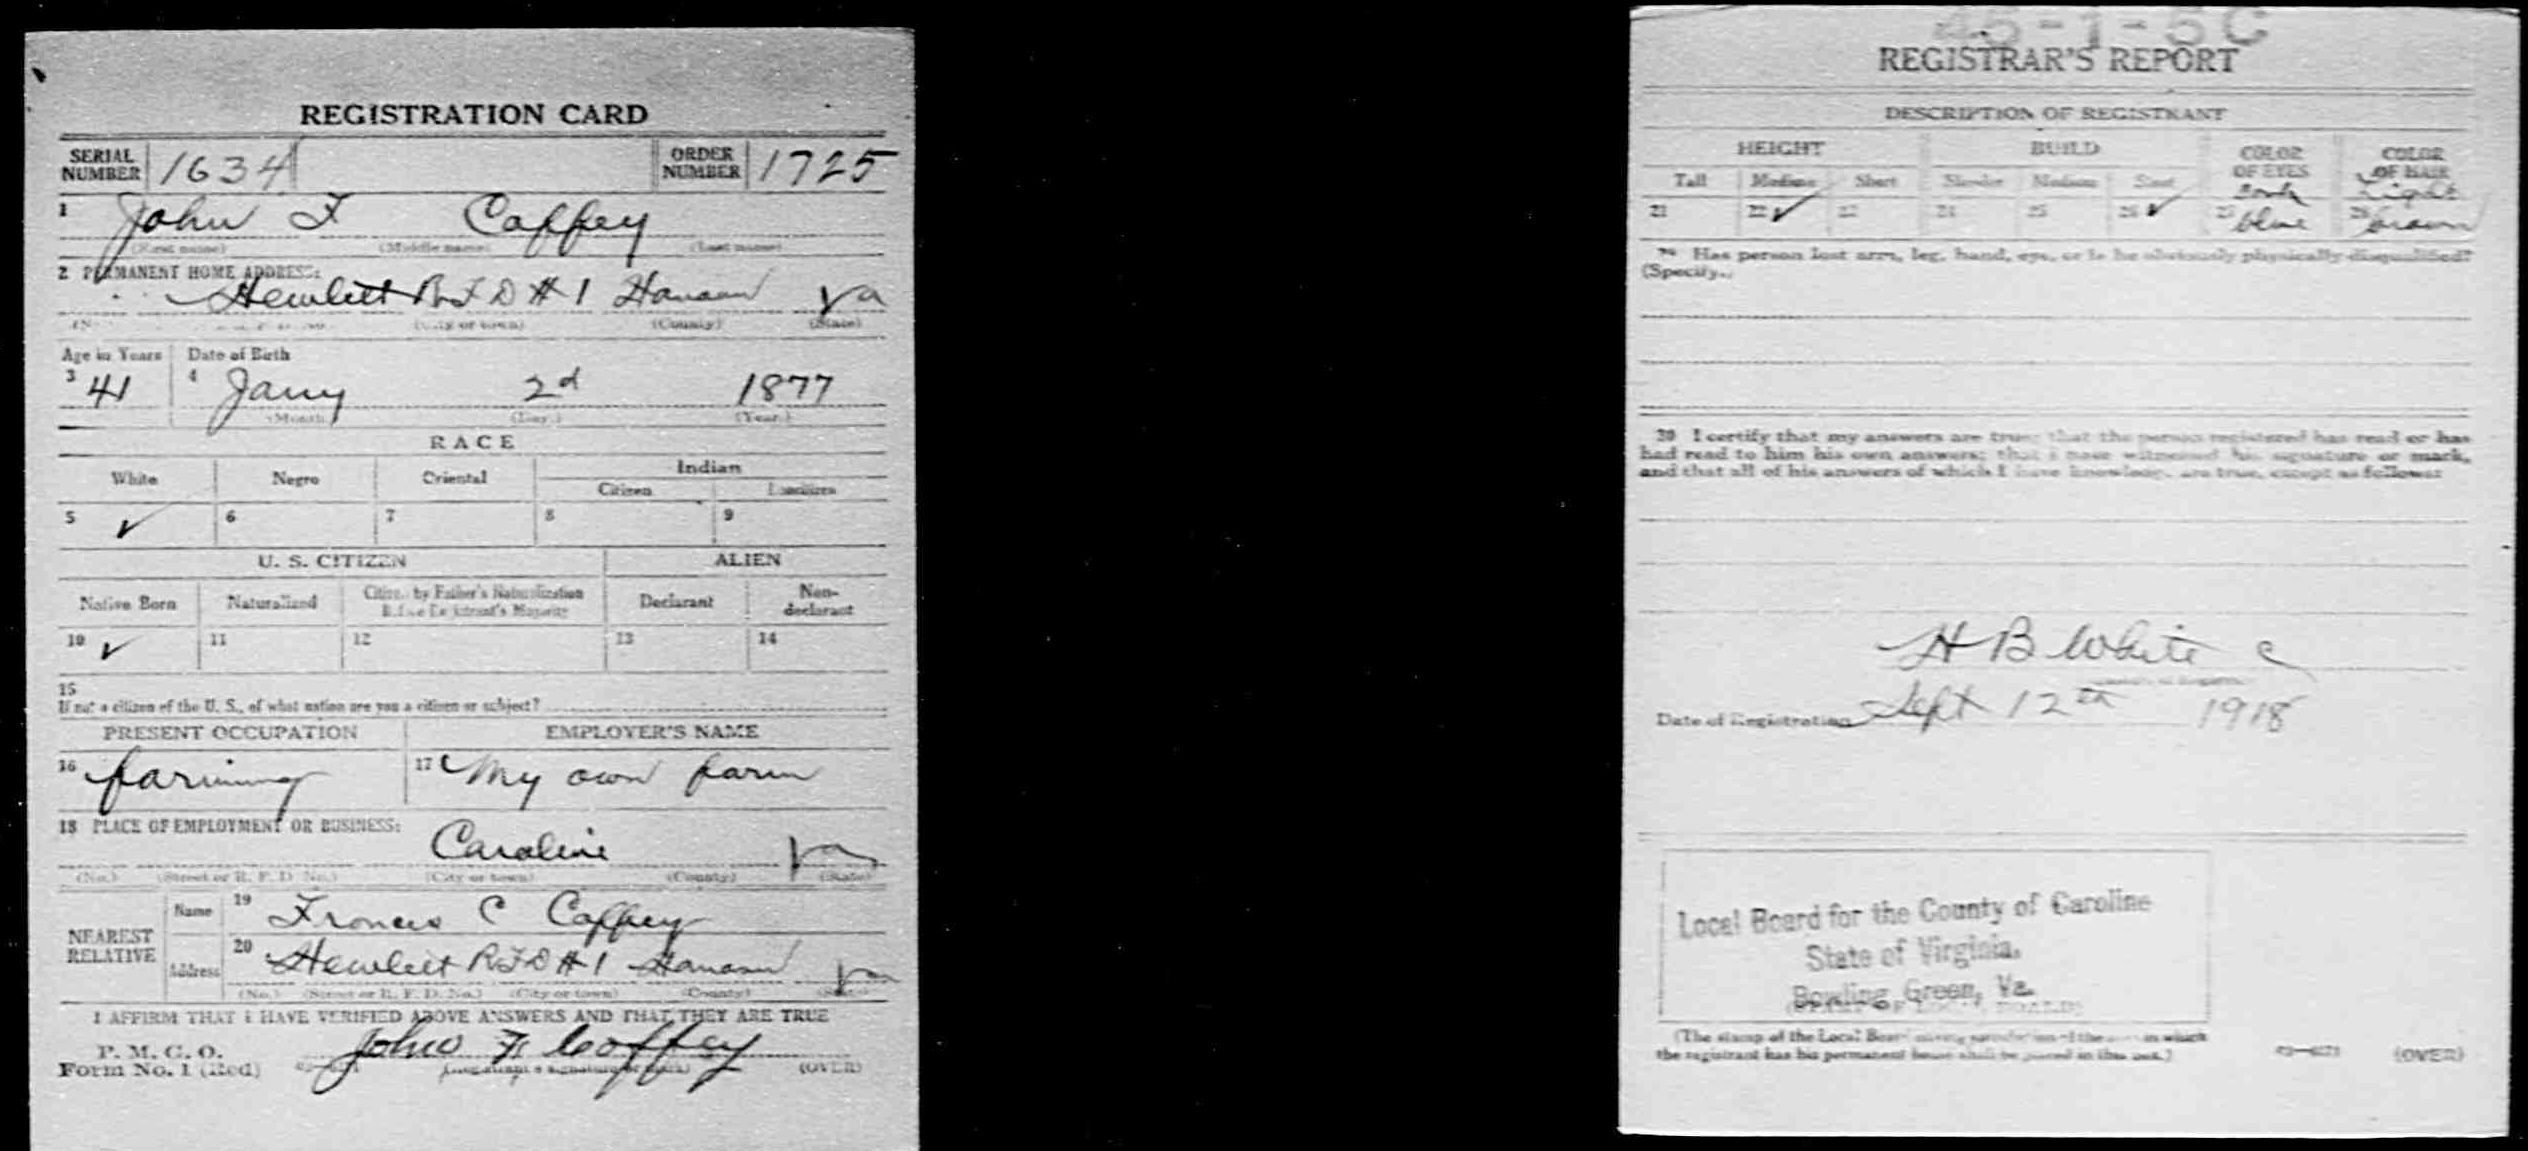 REGISTRATION CARD
SERIAL NUMBER 1634 ORDER NUMBER 1725
1 John F Caffey
(First name) (Middle name) (Last name)
2 PERMANENT HOME ADDRESS:
Hewlett RFD #1 Hanover Va
(City or town) (County) (State)
Age in Years Date of Birth
3 41 4 Jany 2d 1877
(Month) (Day) (Year)
RACE
White Negro Oriental Indian
Citizen
5 ✓ 6 7 8 9
U. S. CITIZEN ALIEN
Native Born Naturalized Citizen by Father's Naturalization Before Registrant's Majority Declarant Non-declarant
10 ✓ 11 12 13 14
15
If not a citizen of the U. S., of what nation are you a citizen or subject?
PRESENT OCCUPATION EMPLOYER'S NAME
16 farming 17 My own farm
18 PLACE OF EMPLOYMENT OR BUSINESS:
Caroline Va
(No.) (Street or R. F. D. No.) (City or town) (County) (State)
NEAREST RELATIVE
Name 19 Frances C Caffey
Address 20 Hewlett RFD #1 Hanover Va
(No.) (Street or R. F. D. No.) (City or town) (County) (State)
I AFFIRM THAT I HAVE VERIFIED ABOVE ANSWERS AND THAT THEY ARE TRUE
P. M. G. O.
Form No. 1 (Red) John F. Coffey
(Registrant's signature or mark) (OVER)
45-1-5 C
REGISTRAR'S REPORT
DESCRIPTION OF REGISTRANT
HEIGHT BUILD COLOR OF EYES COLOR OF HAIR
Tall Medium Short Slender Medium Stout
21 22 ✓ 23 24 25 26 ✓ 27 Dark blue 28 Light brown
29 Has person lost arm, leg, hand, eye, or is he obviously physically disqualified?
(Specify.)
30 I certify that my answers are true; that the person registered has read or has
had read to him his own answers; that I have witnessed his signature or mark,
and that all of his answers of which I have knowledge are true, except as follows:
H B White
Date of Registration Sept 12th 1918
Local Board for the County of Caroline
State of Virginia.
Bowling Green, Va.
(STAMP OF LOCAL BOARD)
(The stamp of the Local Board having jurisdiction of the area in which
the registrant has his permanent home shall be placed in this box.)
(OVER)